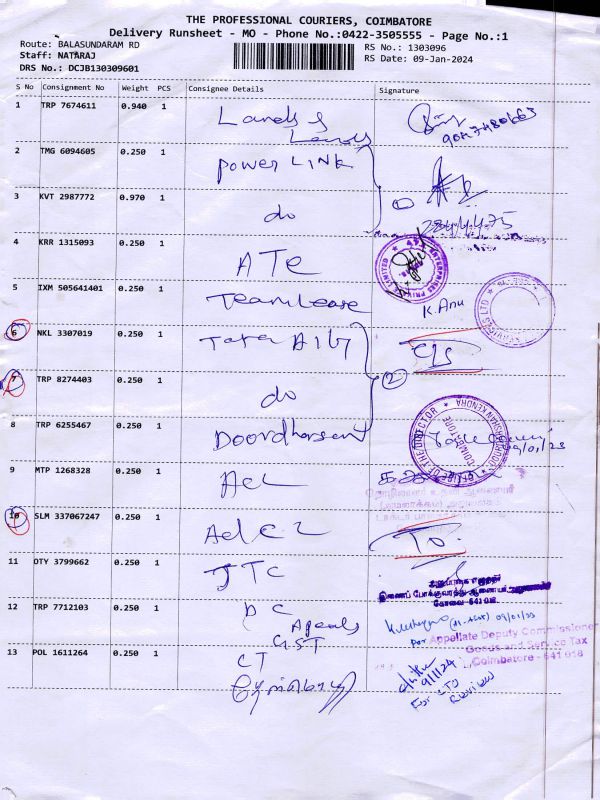 THE PROFESSIONAL COURIERS, COIMBATORE
Delivery Runsheet - MO - Phone No.:0422-3505555 - Page No.:1
Route: BALASUNDARAM RD
RS No.: 1303096
Staff: NATARAJ
RS Date: 09-Jan-2024
DRS No.: DCJB130309601
S No Consignment No Weight PCS Consignee Details Signature
1 TRP 7674611 0.940 1 Lands &
Lands
2 TMG 6094605 0.250 1 Power LINK
3 KVT 2987772 0.970 1 do
1
4 KRR 1315093 0.250 1 ATE
5 IXM 505641401 0.250 1 Teamlease K. Anu
6 NKL 3307019 0.250 1 Tata AIG
7 TRP 8274403 0.250 1 do
2
8 TRP 6255467 0.250 1 Doordharsan
OFFICE OF THE DIRECTOR
COIMBATORE
9 MTP 1268328 0.250 1 ACL
10 SLM 337067247 0.250 1 Ad C L
11 OTY 3799662 0.250 1 JTC
கோவை 641 018
12 TRP 7712103 0.250 1 DC
Appeals
GST
For Appellate Deputy Commissioner
Goods and Service Tax
Coimbatore - 641 018
13 POL 1611264 0.250 1 CT
9/1/24
For CTO
Review